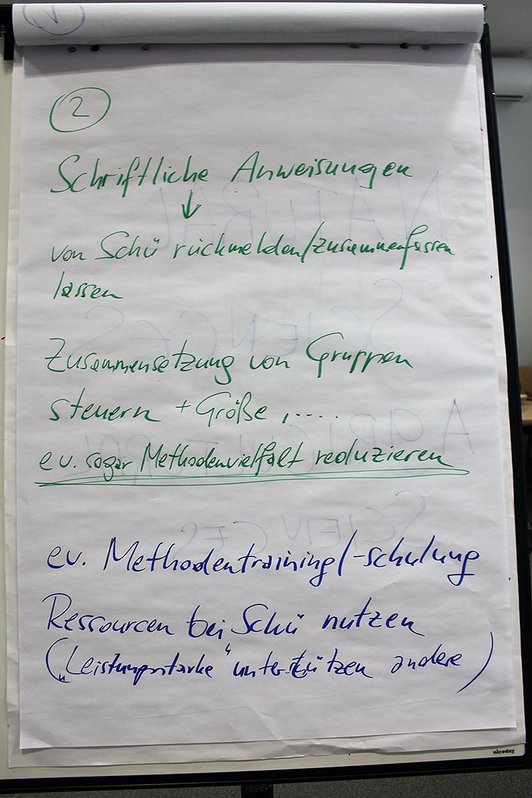 2
Schriftliche Anweisungen
↓
von Schü rückmelden/zusammenfassen
lassen
Zusammensetzung von Gruppen
steuern + Größe, .....
ev. sogar Methodenvielfalt reduzieren
ev. Methodentraining/-schulung
Ressourcen bei Schü nutzen
(„Leistungsstarke" unterstützen andere)
niceday